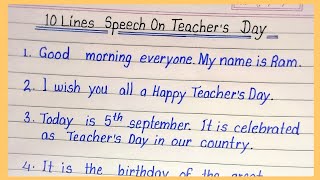 10 Lines Speech On Teacher's Day
1. Good morning everyone. My name is Ram.
2. I wish you all a Happy Teacher's Day.
3. Today is 5th september. It is celebrated
as Teacher's Day in our country.
4. It is the birthday of the great